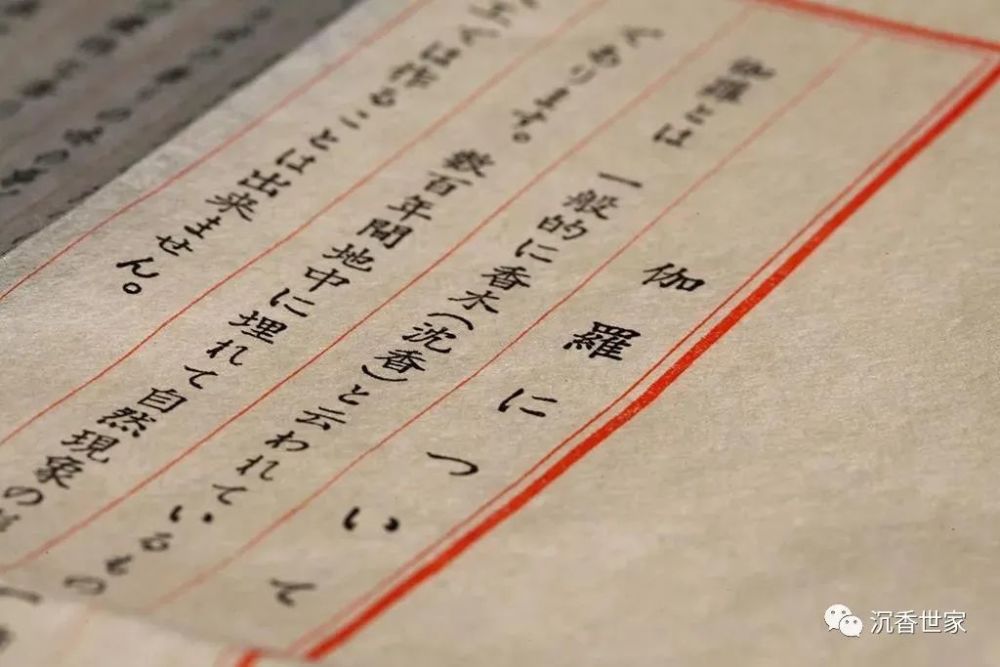 伽羅について
伽羅とは 一般的に香木(沈香)と云われているもの
であります。 数百年間地中に埋れて自然現象の
工では作ることは出来ません。
沉香世家